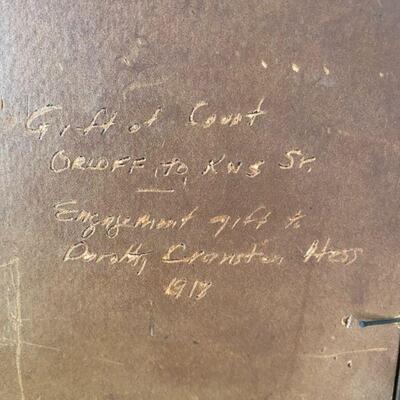 Gift of Count
ORLOFF to KWS Sr.
Engagement gift to
Dorothy Cranston Hess
1918